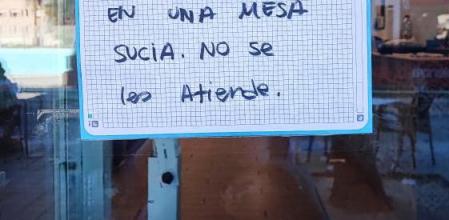 EN UNA MESA
SUCIA. NO Se
les Atiende.